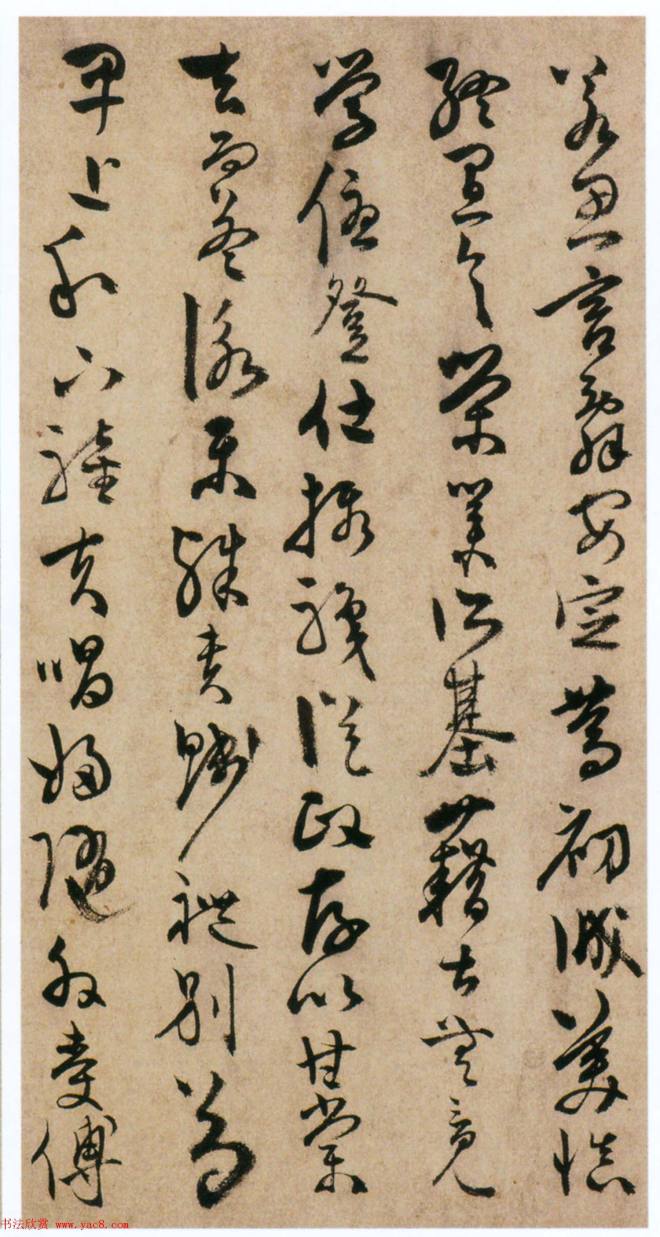 若思言辭安定篤初誠美慎
終宜令榮業所基藉甚無竟
學優登仕攝職從政存以甘棠
去而益詠樂殊貴賤禮別尊
卑上和下睦夫唱婦隨外受傅
书法欣赏 www.yac8.com